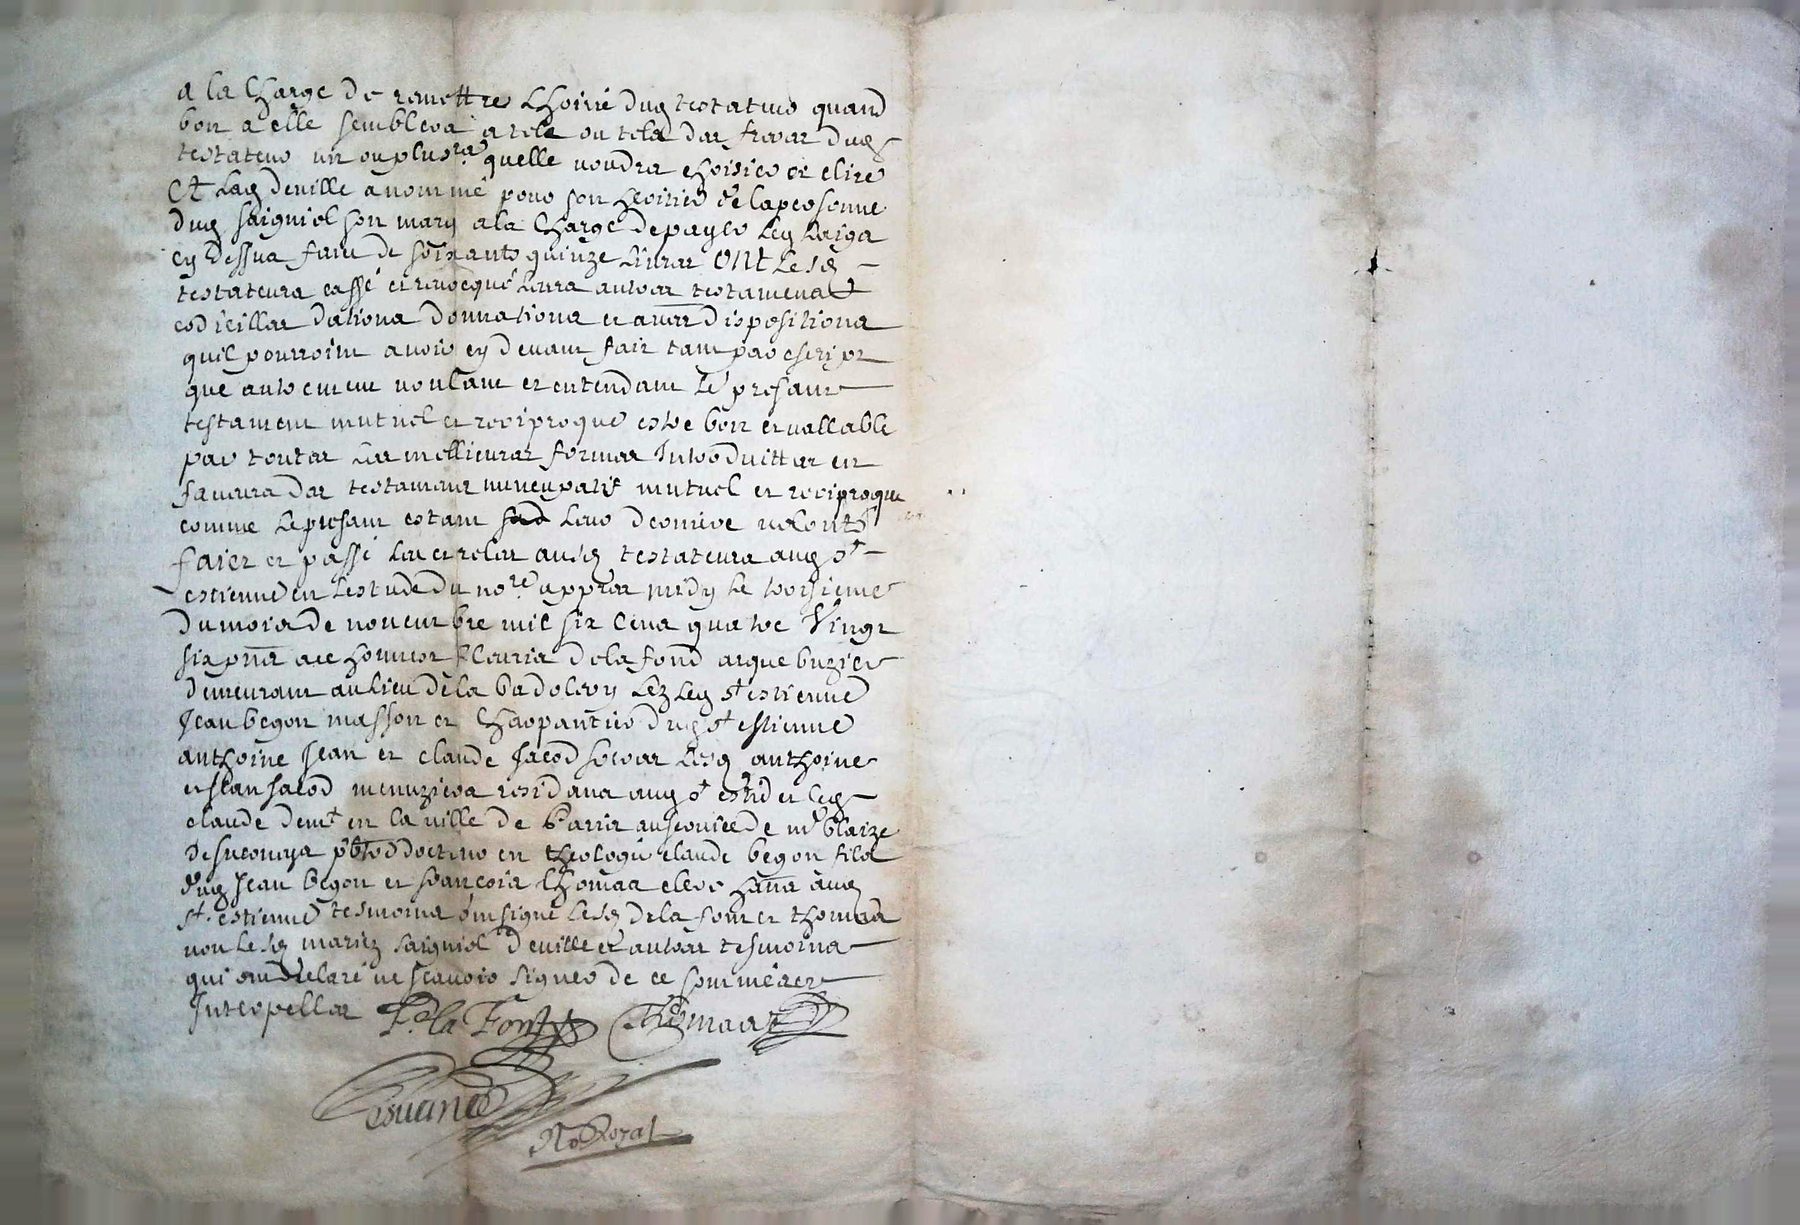 a la charge de remettre lhoirie dud testateur quand
bon a elle semblera a tele ou telz des freres dud
testateur un ou plusrs quelle voudra choisir et elire
Et lad deville a nommé pour son heritier de la personne
dud saigniol son mary a la charge de payer led laigs
cy dessus faict de soixante quinze livres Ont lesd
testateurs cassé et revocqué leurs autres testamens
codicilles dations donnations et autres dispositions
quil pourroint avoir cy devant fait tant par escript
que autrement voulant et entendant le presant
testament mutuel et reciproque estre bon et vallable
par toutes les mellieures formes Introduittes en
faveurs des testamens nuncupatif mutuel et reciproque
comme le presant estant leur derniere volonté
faict et passé leu et relu ausd testateurs aud st
estienne en lestude du nore appres midy le troisieme
du mois de novembre mil six cens quatre Vingt
six pns ace honneste fleuris dela fond arquebuzier
demeurant au lieu de la badolery lez led st estienne
Jean begon masson et charpantier dud st estienne
anthoine Jean et claude Jacod freres lesd anthoine
et Jean Jacod menuziers residans aud st estie et led
claude demt en la ville de Parris au service de mr blaize
pbre docteur en theologie claude begon fils
dud Jean begon et francois thomas clerc hans aud
st estienne tesmoins ont signé lesd dela font et thomas
non lesd mariez saigniol deville et autres tesmoins
qui ont declaré ne scavoir signer de ce sommés et
Interpellés F. la Font Thomas
No Royal